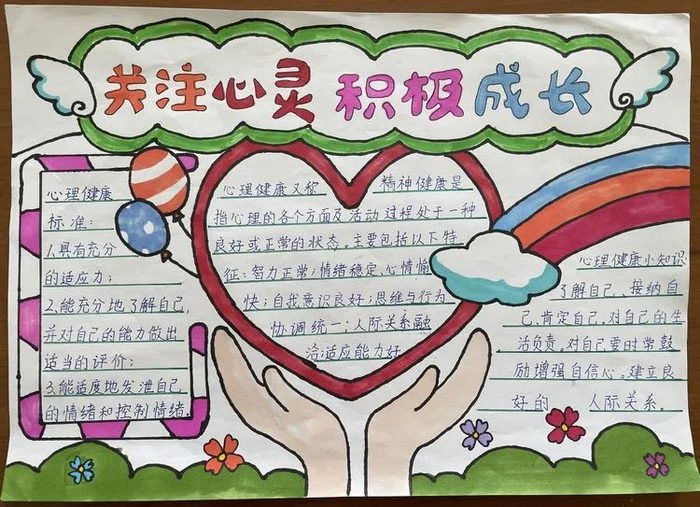 关注心灵 积极成长
心理健康
标准:
1.具有充分
的适应力;
2.能充分地了解自己,
并对自己的能力做出
适当的评价;
3.能适度地发泄自己
的情绪和控制情绪.
心理健康又称 精神健康是
指心理的各个方面及活动过程处于一种
良好或正常的状态。主要包括以下特
征:智力正常;情绪稳定、心情愉
快;自我意识良好;思维与行为
协调统一;人际关系融
洽适应能力好
心理健康小知识
了解自己、接纳自
己、肯定自己,对自己的生
活负责。对自己要时常鼓
励增强自信心。建立良
好的 人际关系.